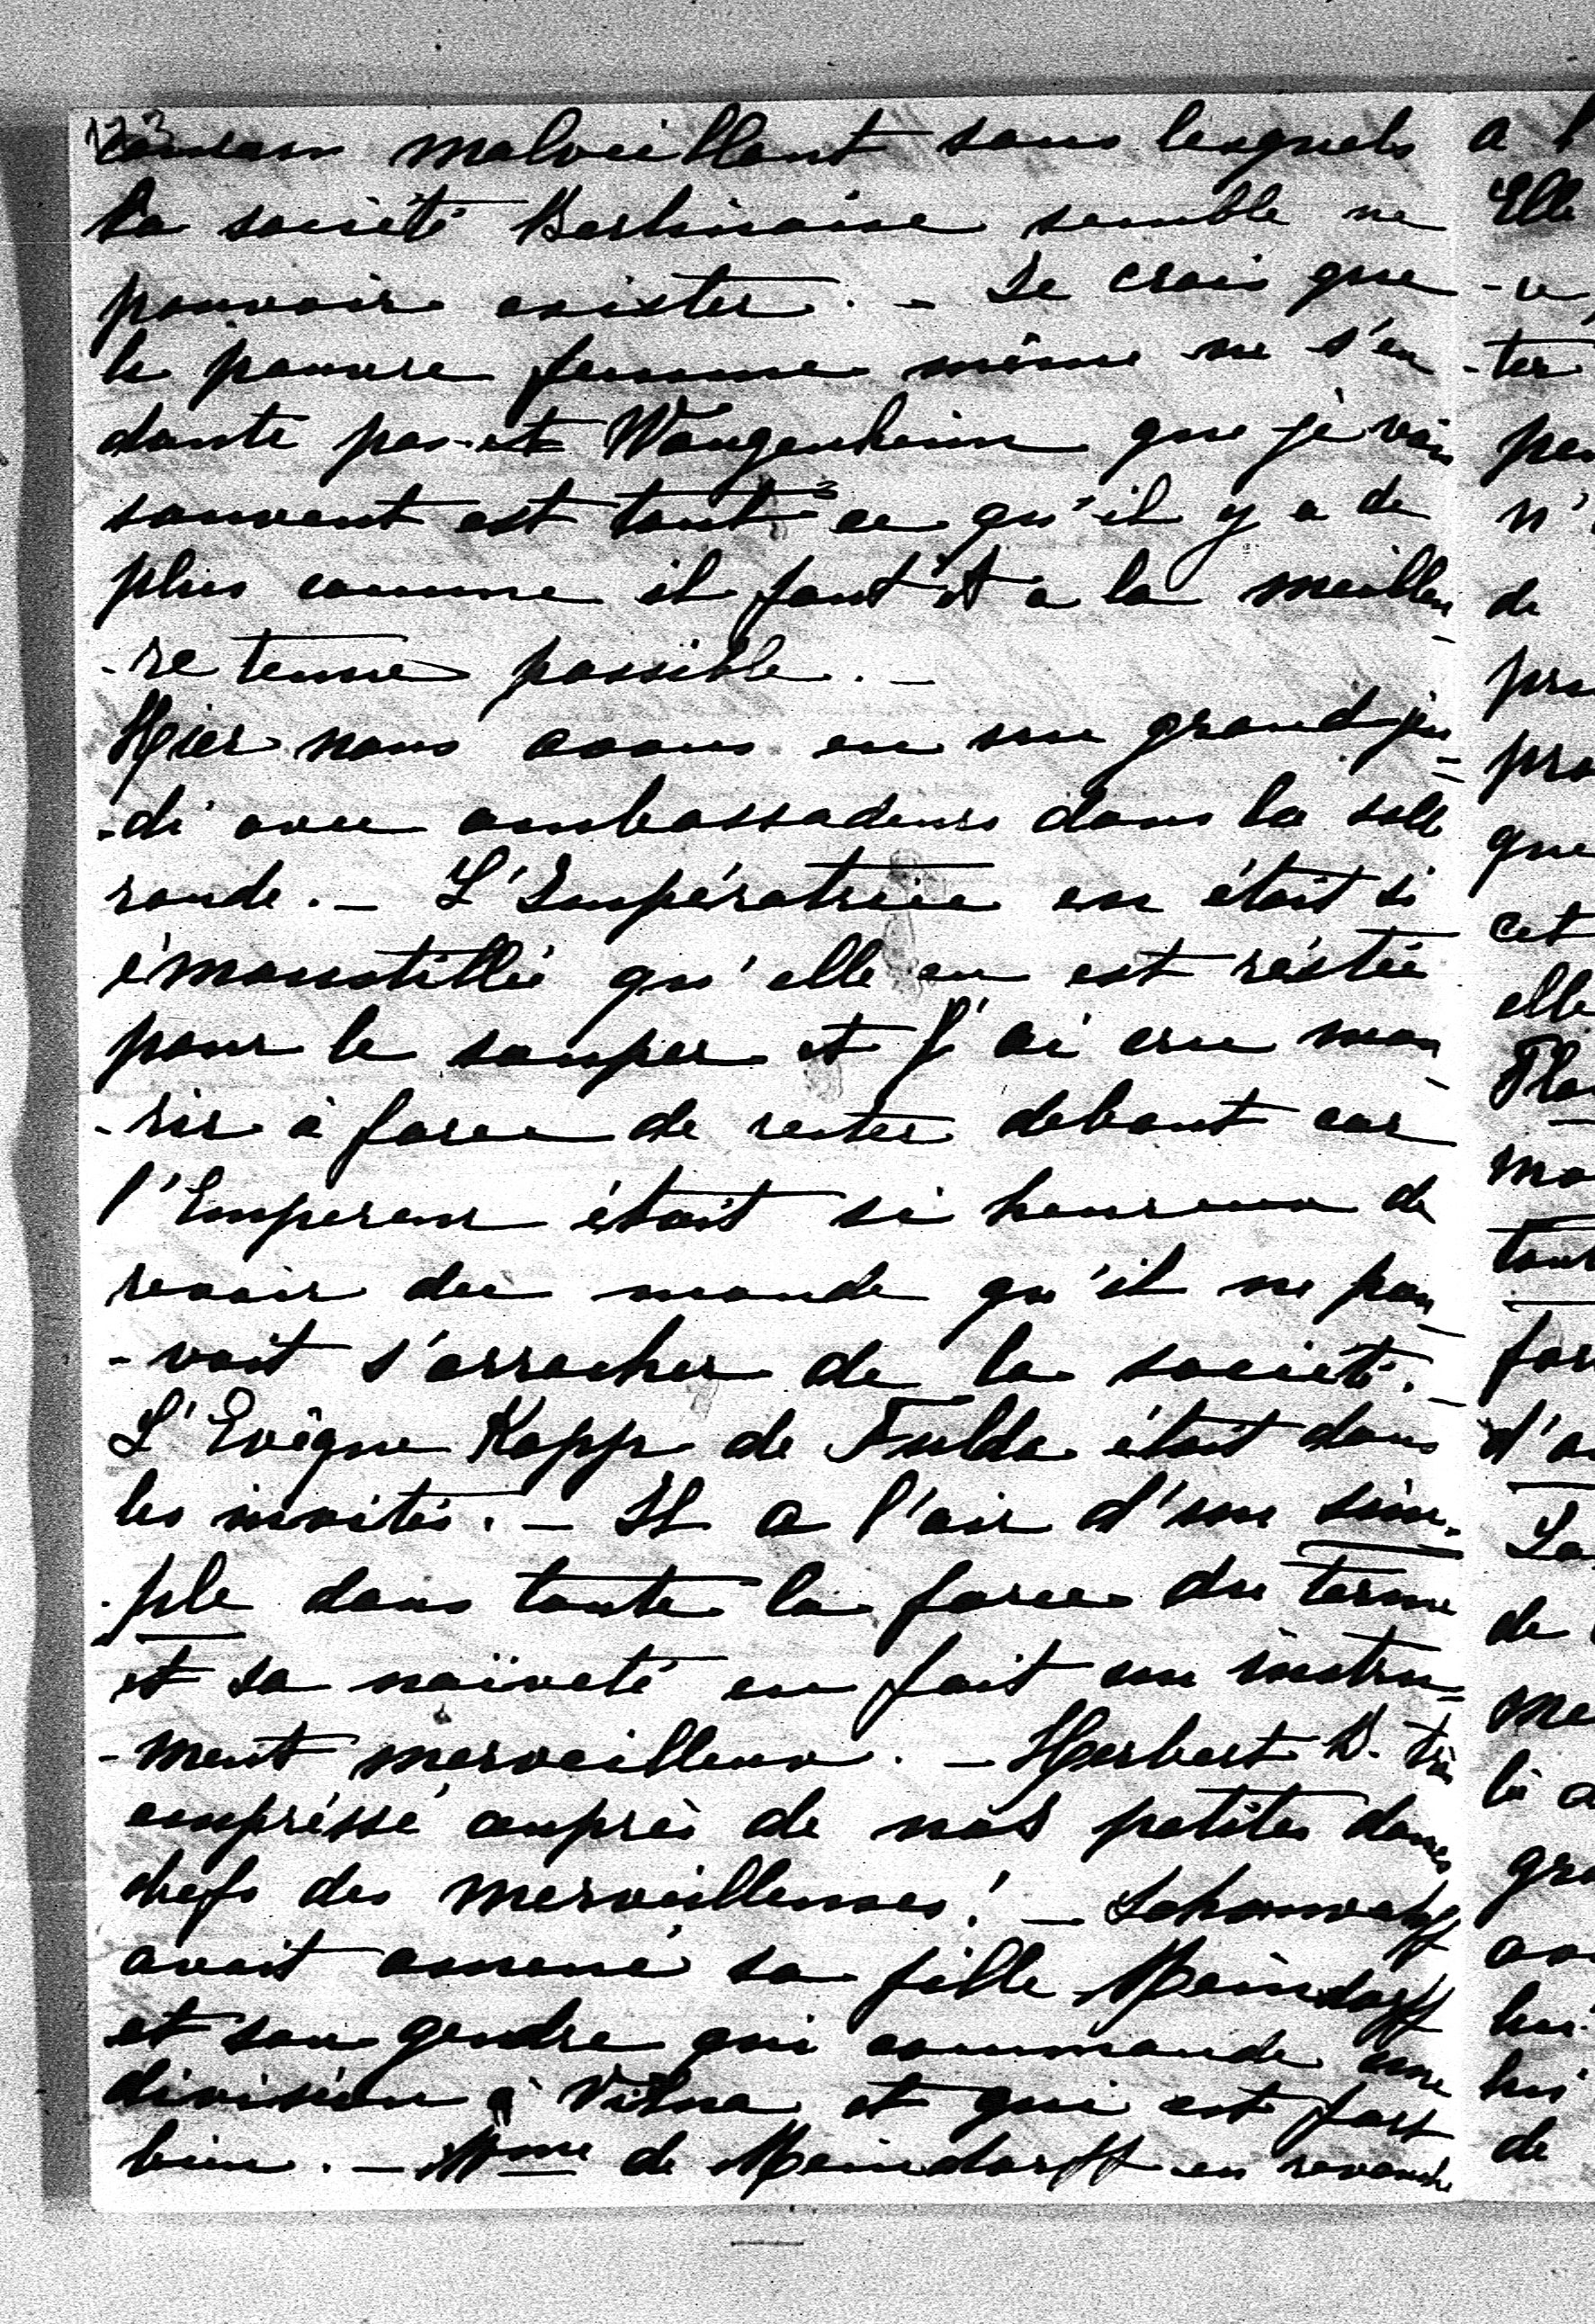 123
malveillant sans lesquels
la société Berlinoise semble ne
pouvoir exister. - Je crois que
la pauvre femme même ne s'en
doute pas et Wangenheim que je vois
souvent est tout ce qu'il y a de
plus comme il faut et a la meilleu-
-re tenue possible. -
Hier nous avons eu un grand jeu-
-di avec ambassadeurs dans la salle
ronde. - L'Impératrice en était si
émoustillée qu'elle en est réstée
pour le souper et j'ai cru mou-
-rir à force de rester debout car
l'Empereur était si heureux de
revoir du monde qu'il ne pou-
-vait s'arracher de la société. -
L'Evêque Kopp de Fulda était dans
les invités. - Il a l'air d'un sim-
-ple dans toute la force du terme
et sa naïveté en fait un instru-
-ment merveilleux. - Herbert B. très
empréssé auprès de nos petites dames
chefs des merveilleuses! - Schouwaloff
avait amené sa fille Meindorff
et son gendre qui commande une
division à Vilna et qui est fort
bien. - Mme de Meindorff en revanche
a l
Elle
-v
-ter
peu
n'
de
pro
que
cet
elle
mo
tour
for
d'a
La
de
me
là a
gra
lui
de